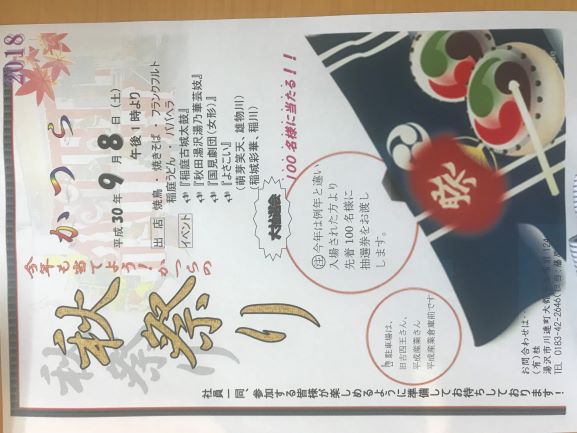 2018
今年も当てよう！かつらの
秋祭り
かつら
平成30年9月8日（土）
午後1時より
出店 焼鳥・焼きそば・フランクフルト
稲庭うどん・ババヘラ
イベント 『稲庭古城太鼓』
『秋田湯沢湯乃華芸妓』
『国見劇団（女形）』
『よさこい』
（萌芽笑天、雄物川）
（稲城彩華、稲川）
大抽選会
100名様に当たる！！
㊟今年は例年と違い
入場された方より
先着100名様に
抽選券をお渡し
します。
祭
駐車場は、
旧吉四王さん、
平成産業さん
平成産業倉庫前です
お問合わせは・・
(有)
湯沢市川連町大
TEL 0183-42-2646
社員一同、参加する皆様が楽しめるように準備してお待ちしております！